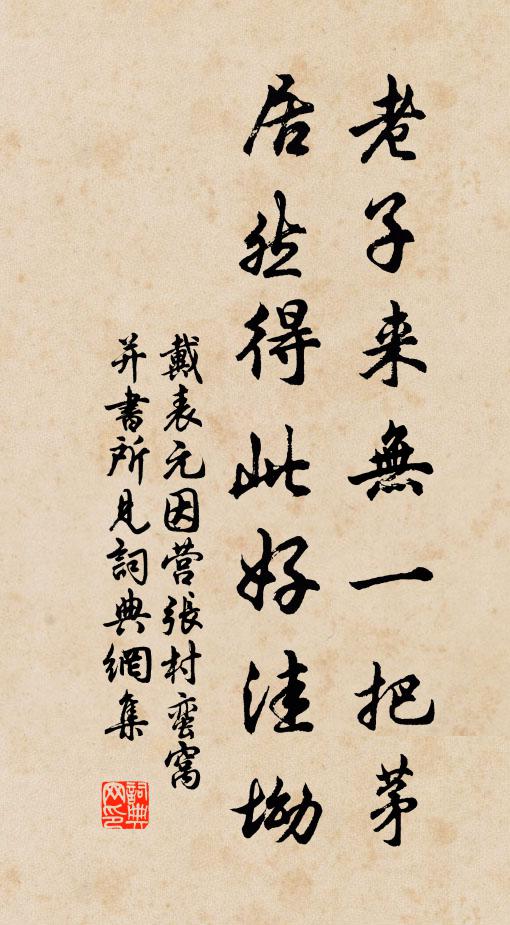 老子来無一把茅
居然得此好洼坳
戴表元因营張村蛮窝
并書所見詞典網集
詞典网印